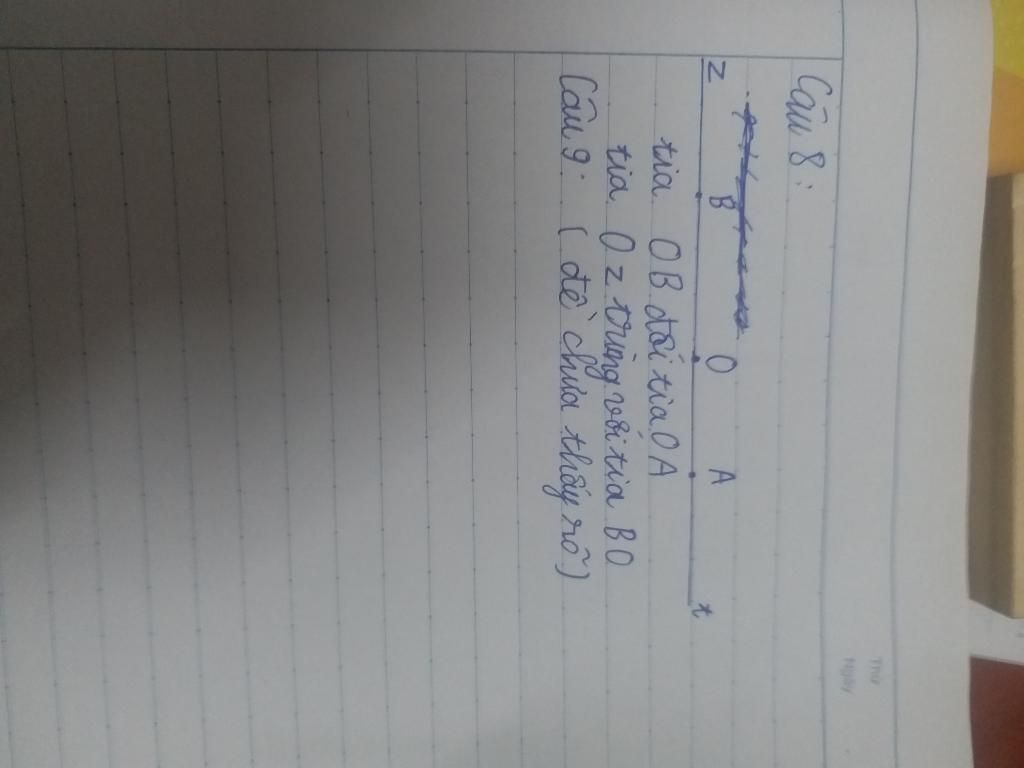 Thứ
Ngày
Câu 8:
z B O A t
tia OB đối tia OA
tia Oz trùng với tia BO
Câu 9: (đề chưa thấy rõ)